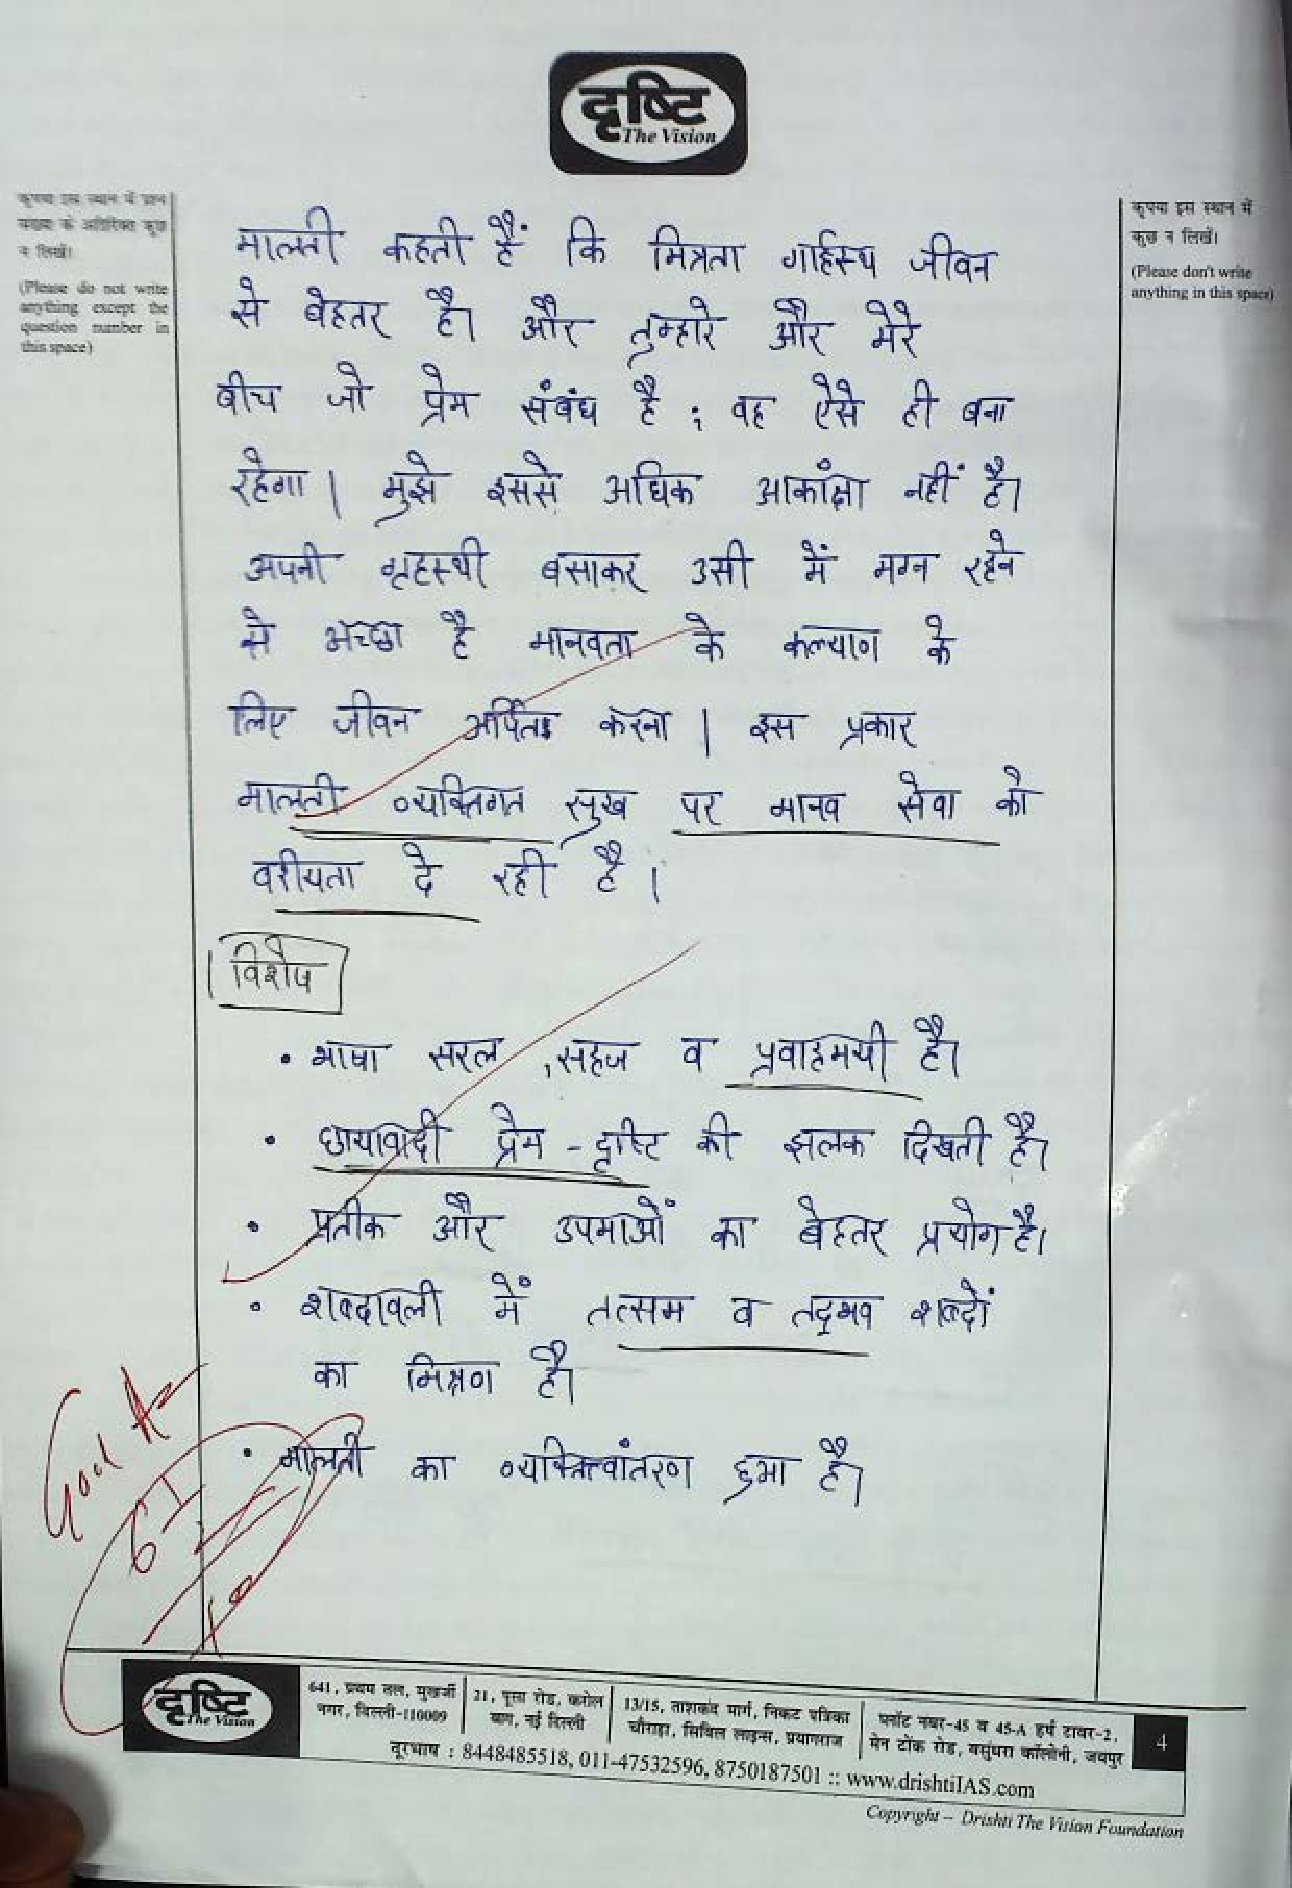 दृष्टि
The Vision
कृपया इस स्थान में प्रश्न
संख्या के अतिरिक्त कुछ
न लिखें।
(Please do not write
anything except the
question number in
this space)
कृपया इस स्थान में
कुछ न लिखें।
(Please don't write
anything in this space)
मालती कहती हैं कि मित्रता गार्हस्थ जीवन
से बेहतर है। और तुम्हारे और मेरे
बीच जो प्रेम संबंध है ; वह ऐसे ही बना
रहेगा। मुझे इससे अधिक आकांक्षा नहीं है।
अपनी गृहस्थी बसाकर उसी में मग्न रहने
से अच्छा है मानवता के कल्याण के
लिए जीवन अर्पित करना। इस प्रकार
मालती व्यक्तिगत सुख पर मानव सेवा को
वरीयता दे रही है।
विशेष
• भाषा सरल, सहज व प्रवाहमयी है।
• छायावादी प्रेम - दृष्टि की झलक दिखती है।
• प्रतीक और उपमाओं का बेहतर प्रयोग है।
• शब्दावली में तत्सम व तद्भव शब्दों
का मिश्रण है।
• मालती का व्यक्तित्वांतरण हुआ है।
Good
दृष्टि
The Vision
641, प्रथम तल, मुखर्जी
नगर, दिल्ली-110009
21, पूसा रोड, करोल
बाग, नई दिल्ली
13/15, ताशकंद मार्ग, निकट पत्रिका
चौराहा, सिविल लाइन्स, प्रयागराज
प्लॉट नंबर-45 व 45-A हर्ष टावर-2,
मेन टोंक रोड, वसुंधरा कॉलोनी, जयपुर
4
दूरभाष : 8448485518, 011-47532596, 8750187501 :: www.drishtiIAS.com
Copyright – Drishti The Vision Foundation